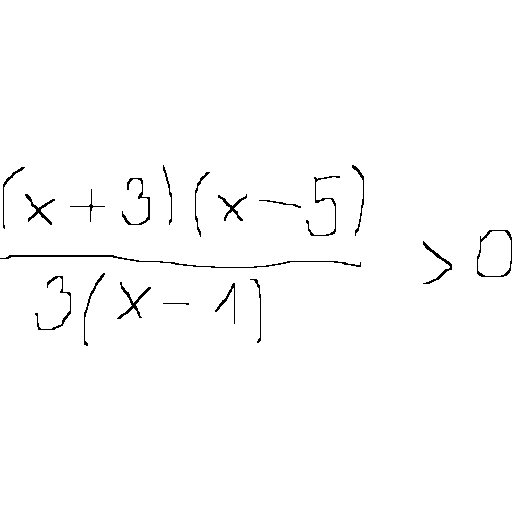 \frac{(x+3)(x-5)}{3(x-1)} > 0